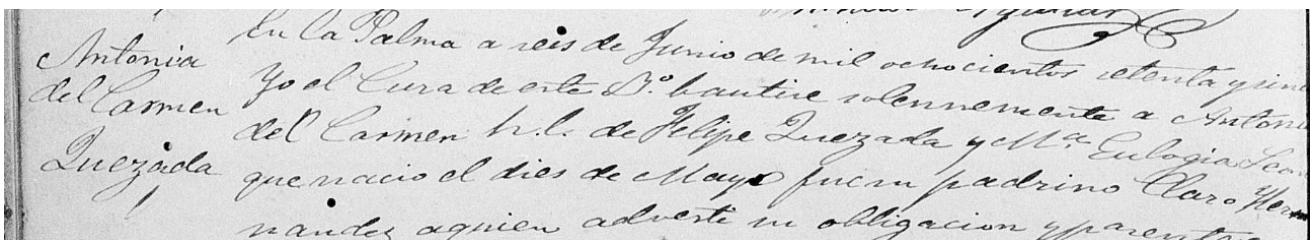 Antonia
del Carmen
Quezada
En la Palma a seis de Junio de mil ochocientos setenta y sinc
Yo el Cura de este Bº bautise solennemente a Antoni
del Carmen h. l. de Felipe Quezada y Mª Eulogia
que nacio el dies de Mayo fue su padrino Claro Her
nandez a quien adverti su obligacion y parentes